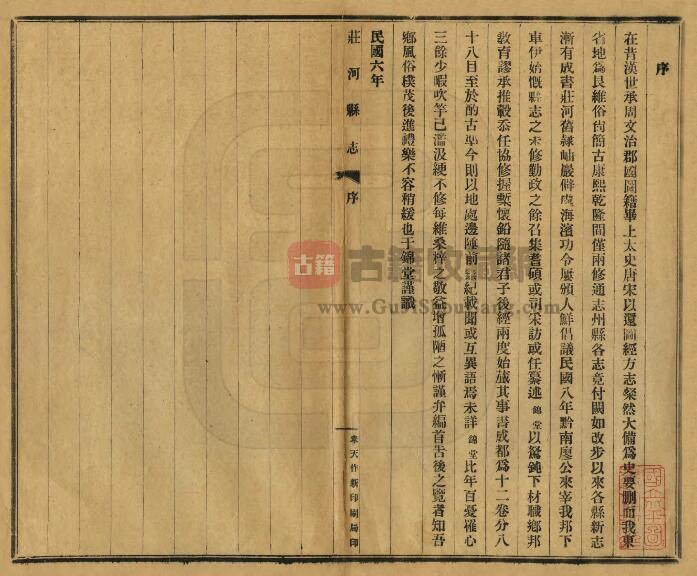 序
在昔漢世承周文治郡國圖籍畢上太史唐宋以還圖經方志粲然大備爲史要刪而我東
省地爲艮維俗尙簡古康熙乾隆間僅兩修通志州縣各志竟付闕如改步以來各縣新志
漸有成書莊河舊隸岫巖僻處海濱功令屢頒人鮮倡議民國八年黔南廖公來宰我邦下
車伊始慨縣志之未修勤政之餘召集耆碩或司采訪或任纂述錦堂以駑鈍下材職鄉邦
敎育謬承推轂忝任協修握槧懷鉛隨諸君子後經兩度始蕆其事書成都爲十二卷分八
十八目至於酌古準今則以地處邊陲前無紀載聞或互異語焉未詳錦堂比年百憂罹心
三餘少暇吹竽已濫汲綆不修每維桑梓之敬益增孤陋之慚謹弁編首吿後之覽者知吾
鄕風俗樸茂後進禮樂不容稍緩也于錦堂謹識
民國六年
莊河縣志
序
奉天作新印刷局印
古籍
古籍收藏网
www.GuJiShouCang.com